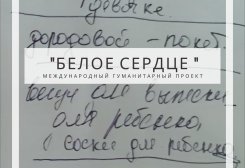 девочке.
дородовой - пакет
"БЕЛОЕ СЕРДЦЕ"
МЕЖДУНАРОДНЫЙ ГУМАНИТАРНЫЙ ПРОЕКТ
для выписки
для ребенка,
соски для ребенка